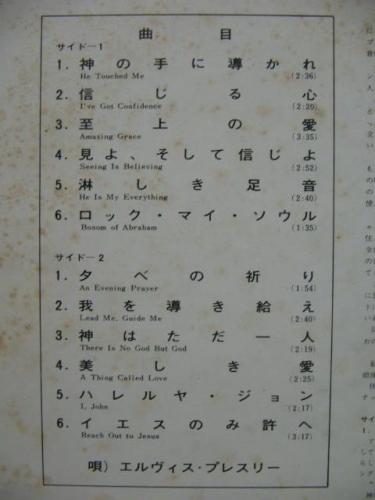 曲目
サイド―1
1. 神の手に導かれ
He Touched Me (2:36)
2. 信じる心
I've Got Confidence (2:20)
3. 至上の愛
Amazing Grace (3:35)
4. 見よ、そして信じよ
Seeing Is Believing (2:52)
5. 淋しき足音
He Is My Everything (2:40)
6. ロック・マイ・ソウル
Bosom of Abraham (1:35)
サイド―2
1. 夕べの祈り
An Evening Prayer (1:54)
2. 我を導き給え
Lead Me, Guide Me (2:40)
3. 神はただ一人
There Is No God But God (2:19)
4. 美しき愛
A Thing Called Love (2:25)
5. ハレルヤ・ジョン
I, John (2:17)
6. イエスのみ許へ
Reach Out to Jesus (3:17)
唄) エルヴィス・プレスリー